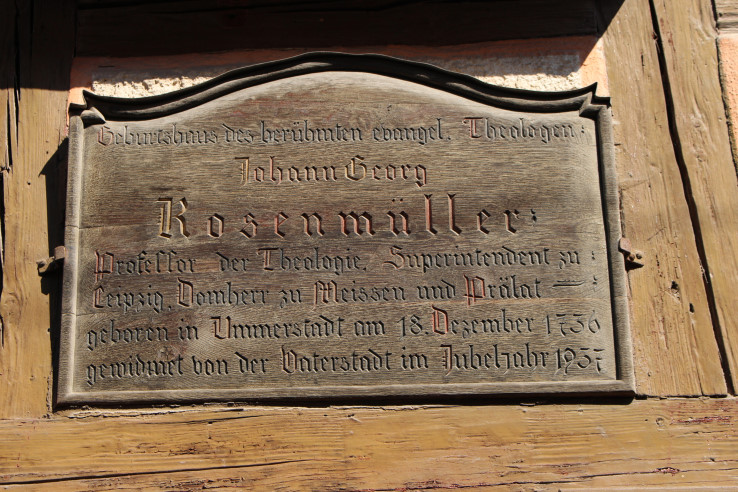 Geburtshaus des berühmten evangel. Theologen:
Johann Georg
Rosenmüller:
Professor der Theologie. Superintendent zu
Leipzig. Domherr zu Meissen und Prälat —
geboren in Ummerstadt am 18. Dezember 1736
gewidmet von der Vaterstadt im Jubeljahr 1937.